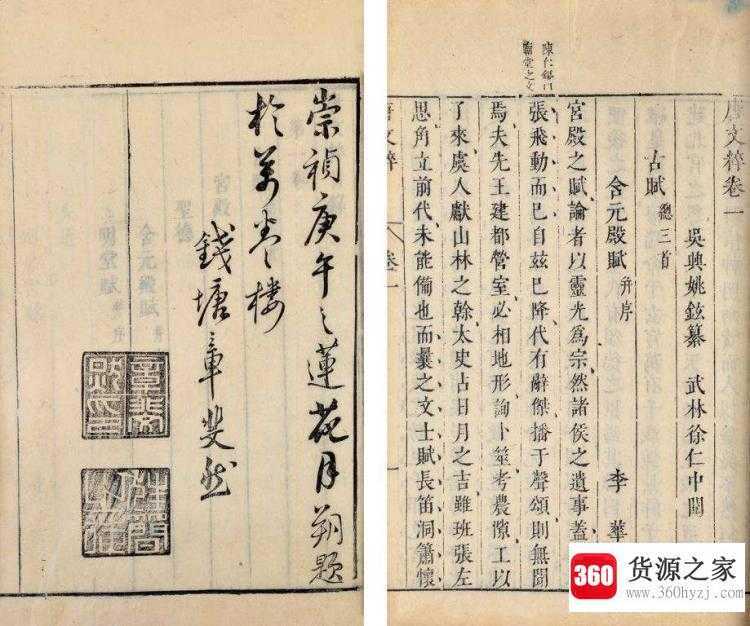 唐文粹卷一
吳興姚鉉纂 武林徐仁中閱
古賦 總三首
含元殿賦 并序 李華
陳仁錫曰
廟堂之文
宮殿之賦論者以靈光爲宗然諸侯之遺事蓋
張飛動而已自茲已降代有辭傑播于聲頌則無聞
焉夫先王建都營室必相地形詢卜筮考農隙工以
了來虞人獻山林之榦太史占日月之吉雖班張左
思角立前代未能備也而曩之文士賦長笛洞簫懷
唐文粹 卷一
崇禎庚午之蓮花月朔題
於萬卷樓
錢塘章斐然
360 货源之家
www.360hyzj.com